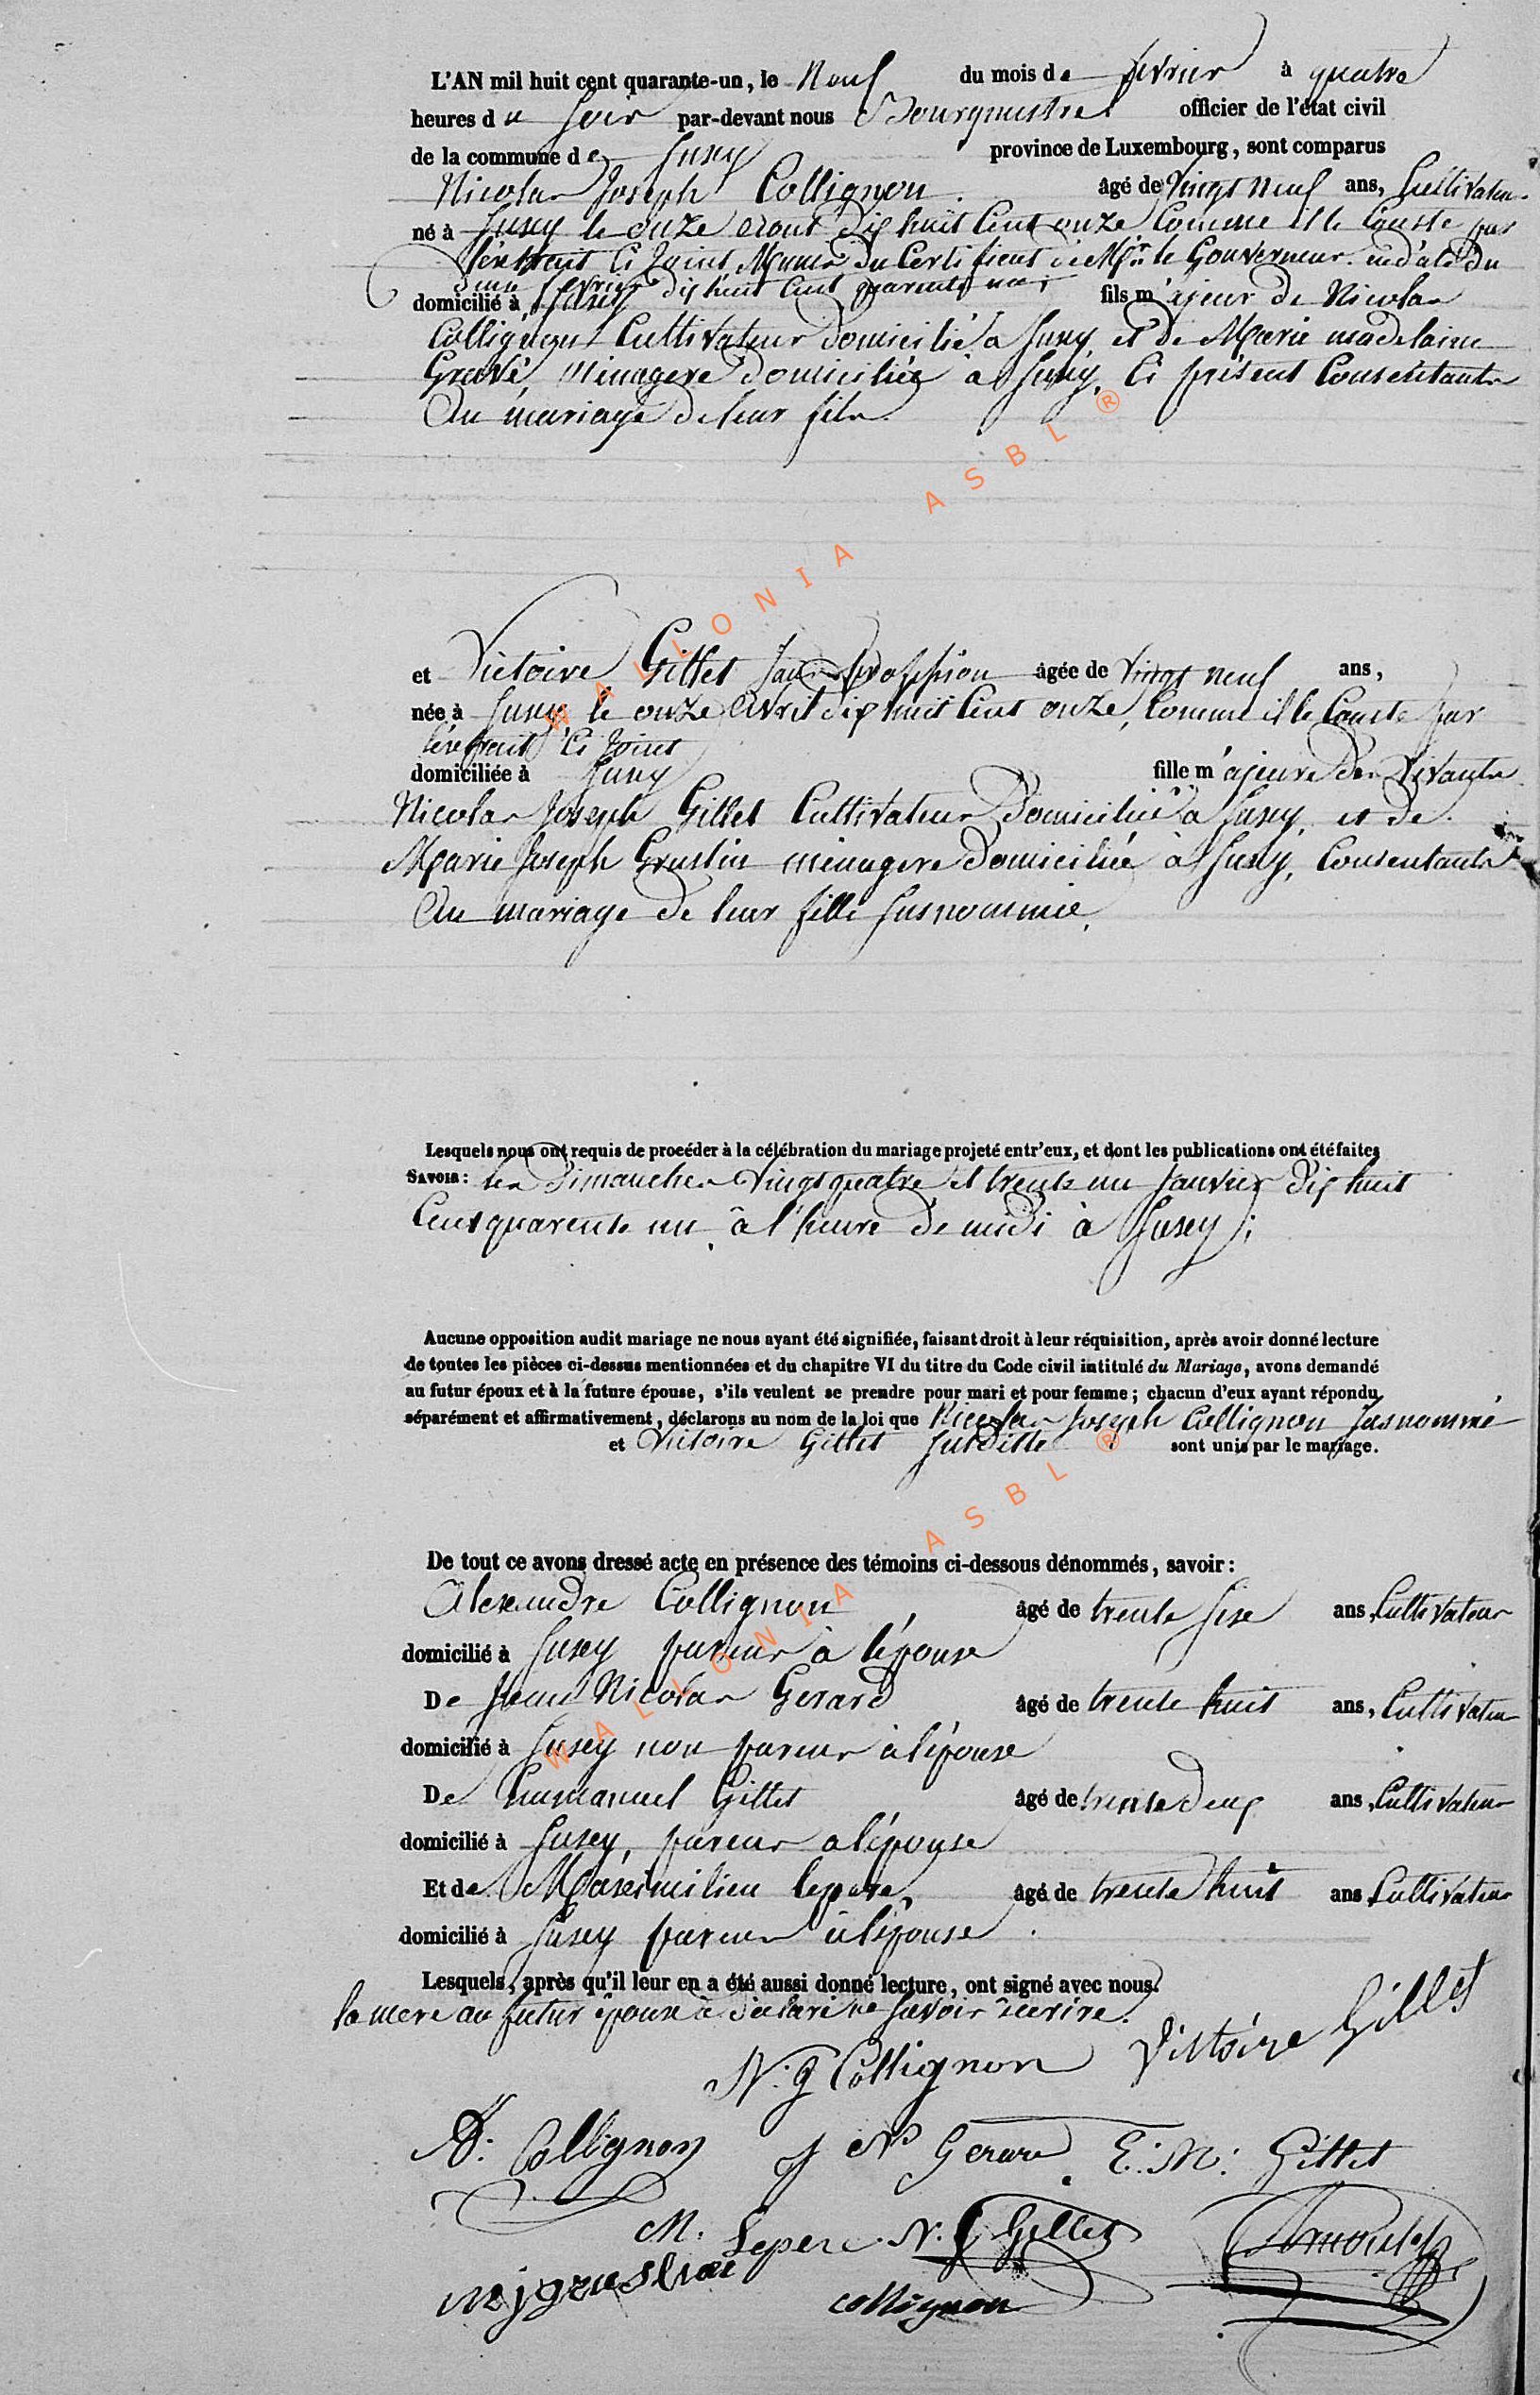 L'AN mil huit cent quarante-un, le Neuf du mois de fevrier à quatre
heures du soir par-devant nous Bourgmestre officier de l'état civil
de la commune de Juzey province de Luxembourg, sont comparus
Nicolas Joseph Collignon. âgé de Vingt neuf ans, Cultivateur
né à Juzey le onze aout dix huit Cent onze Comme il le Conste par
l'extrait Ci Joint Munis du Certificat de Mr. le Gouverneur en date du
fevrier dix huit Cent quarente un;
domicilié à Jusey fils majeur de Nicolas
Collignon Cultivateur domicilié à Jusey et de Marie madelaine
Gravé, Ménagere domiciliée à Jusey, Ci présent Consentants
Au mariage de leur fils.
et Victoire Gillet Sans profession agée de Vingt neuf ans,
née à Jusey le onze Avril dix huit Cent onze, Comme il le Conste par
l'extrait Ci Joint
domiciliée à Jusey fille majeure des Vivants
Nicolas Joseph Gillet Cultivateur Domicilié à Jusey, et de
Marie Joseph Gruslin ménagere Domiciliée à Jusey, Consentants
Au mariage de leur fille susnommée,
Lesquels nous ont requis de procéder à la célébration du mariage projeté entr'eux, et dont les publications ont été faites
SAVOIR: les Dimanches Vingt quatre et trente un Janvier dix huit
Cent quarente un, à l'heure de midi à Jusey;
Aucune opposition audit mariage ne nous ayant été signifiée, faisant droit à leur réquisition, après avoir donné lecture
de toutes les pièces ci-dessus mentionnées et du chapitre VI du titre du Code civil intitulé du Mariage, avons demandé
au futur époux et à la future épouse, s'ils veulent se prendre pour mari et pour femme; chacun d'eux ayant répondu
séparément et affirmativement, déclarons au nom de la loi que Nicolas Joseph Collignon Susnommé
et Victoire Gillet Susditte sont unis par le mariage.
De tout ce avons dressé acte en présence des témoins ci-dessous dénommés, savoir:
Alexandre Collignon, âgé de trente sixe ans, Cultivateur
domicilié à Jusey parent à l'épouse
De Jean Nicolas Gerard âgé de trente huit ans, Cultivateur
domicilié à Jusey non parent à l'épouse
De Emmanuel Gillet âgé de trente deux ans, Cultivateur
domicilié à Jusey, parent a l'épouse
Et de Maximilien lepere, âgé de trente huit ans, Cultivateur
domicilié à Jusey parent à l'épouse
Lesquels, après qu'il leur en a été aussi donné lecture, ont signé avec nous.
la mere au futur époux à déclaré ne savoir écrire.
N. J Collignon Victoire Gillet
A: Collignon J Ns Gerard E: M: Gillet
M. Leperc N. J Gillet
mjgruslin collignon
WALLONIA ASBL ®
WALLONIA ASBL ®